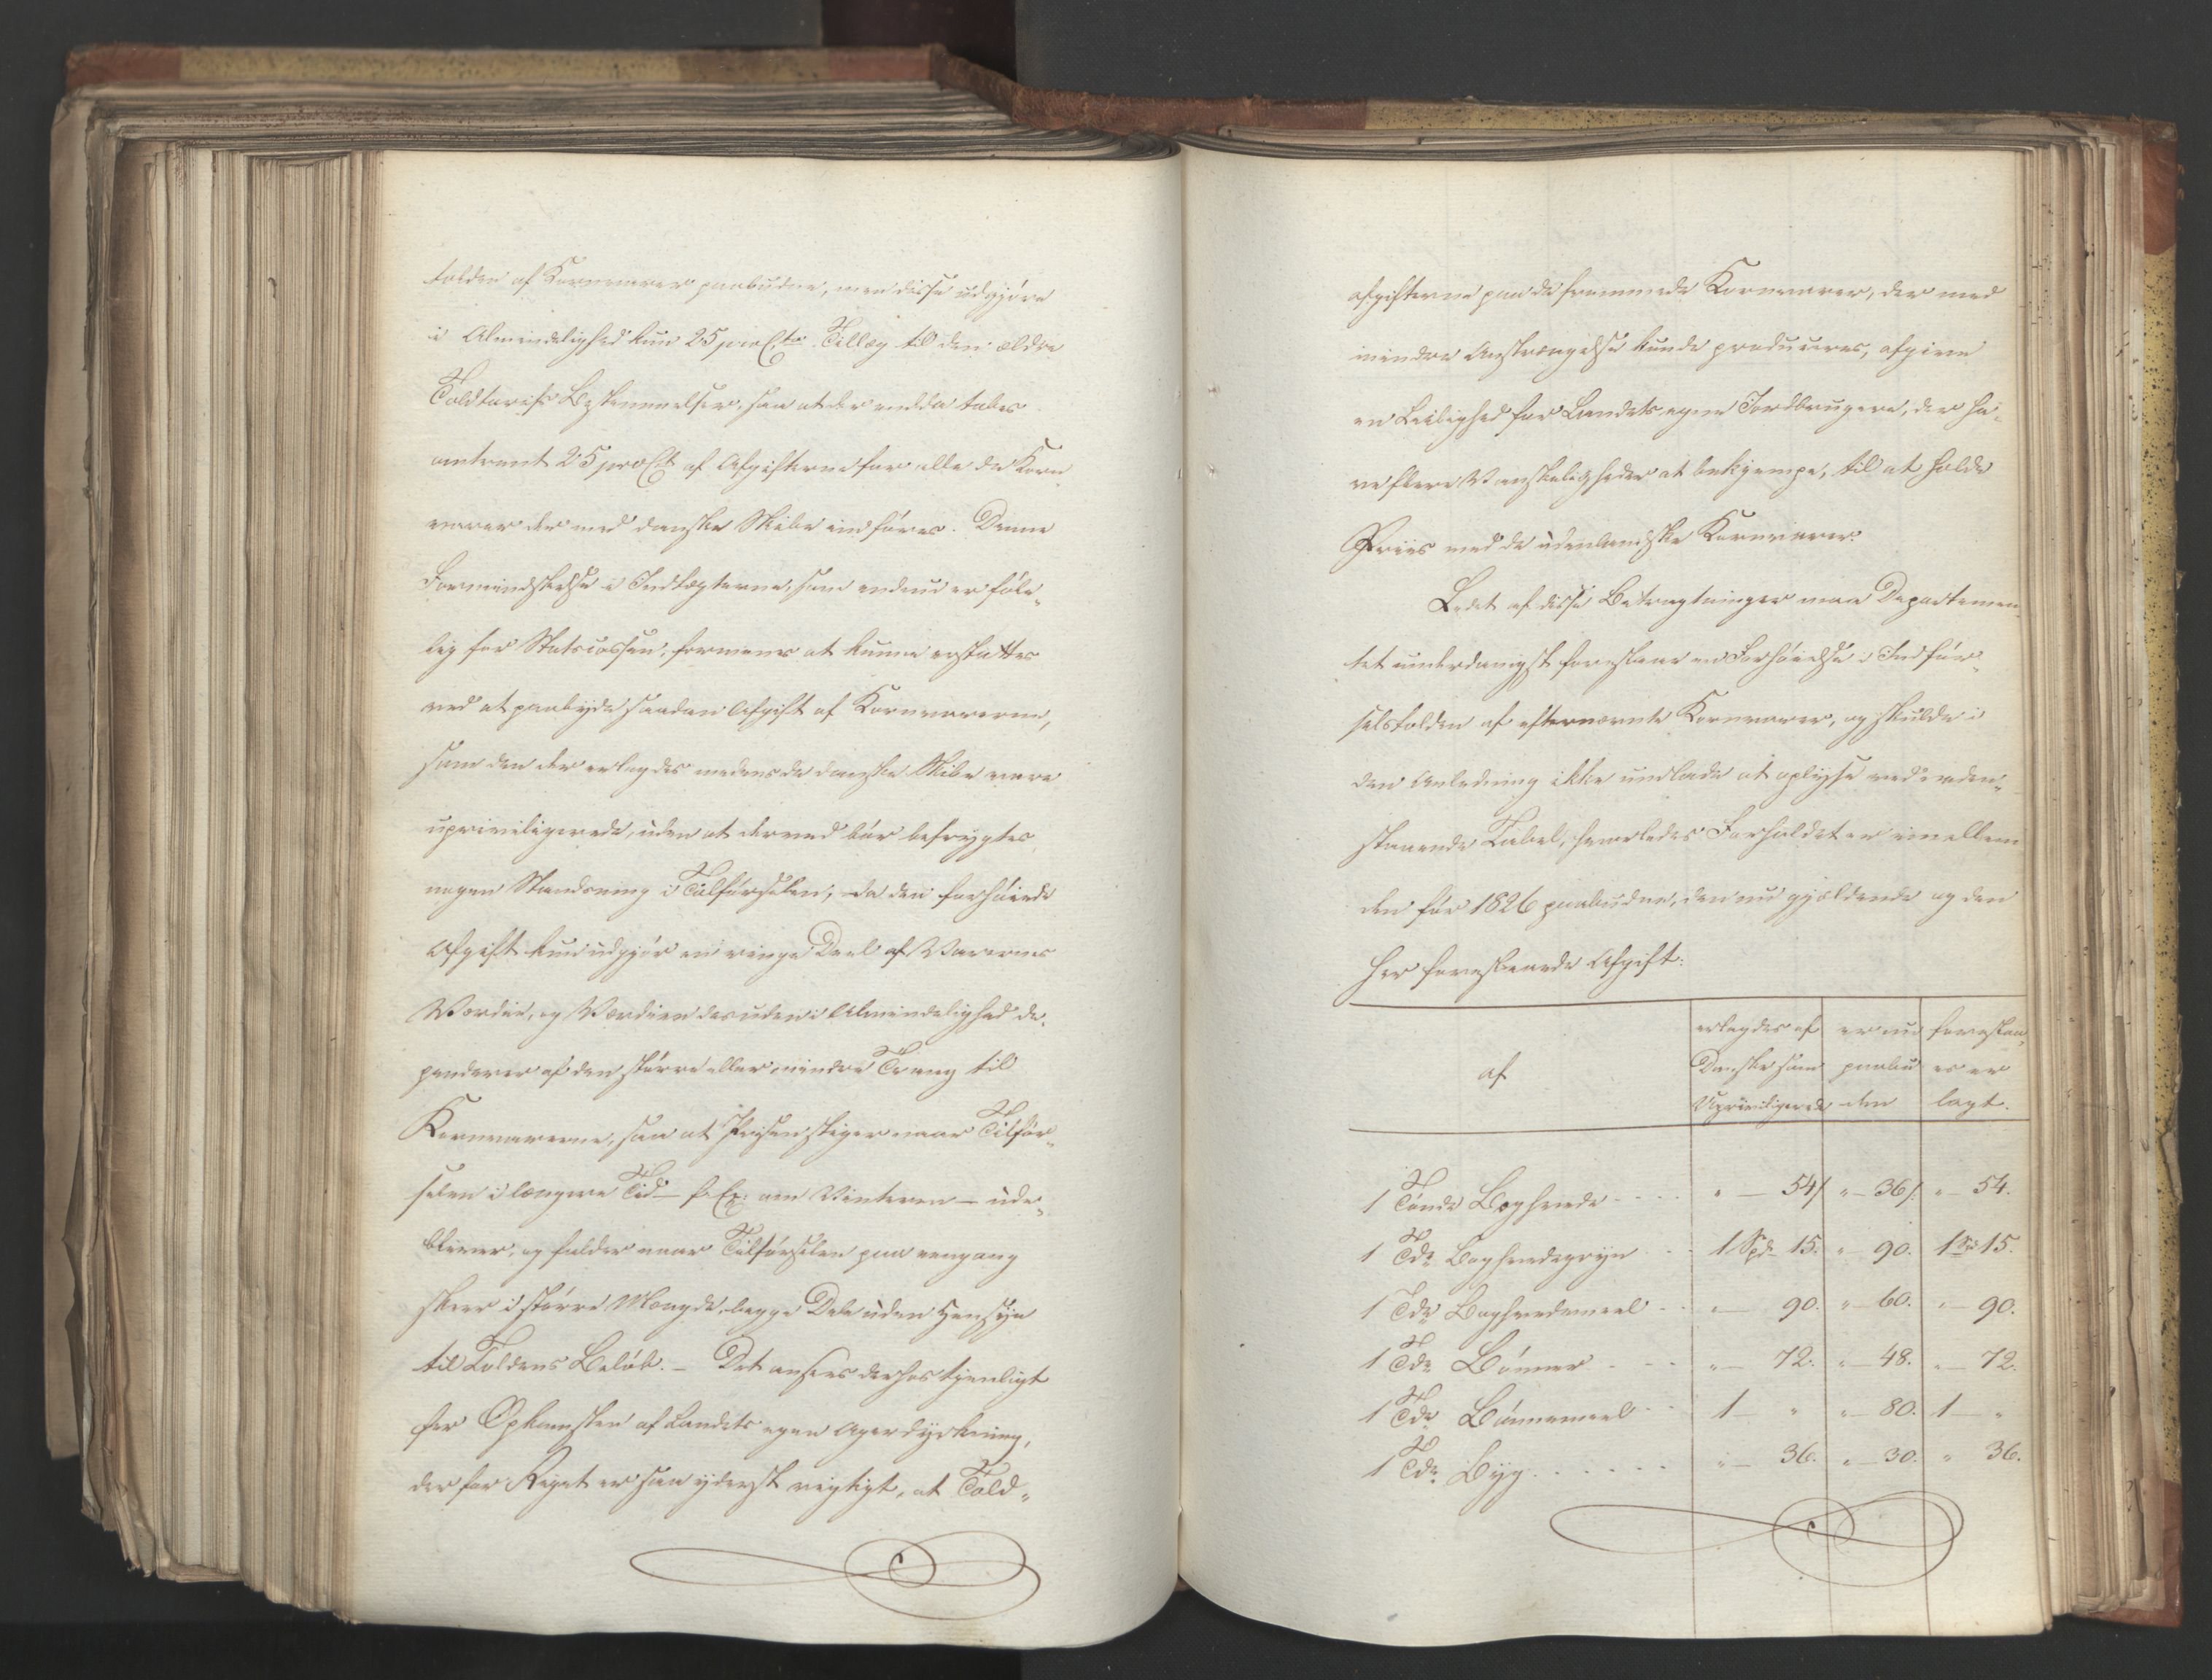 tolden af Kornvarer paabuden, men disse udgjøre
i Almindelighed kun 25 proCto Tillæg til den ældre
Toldtarifs Bestemmelser, saa at der endda tabes
omtrent 25 proCt af Afgifterne for alle de Korn
varer der med danske Skibe indføres. Denne
Formindskelse i Indtægterne, som endnu er føle-
lig for Statscassen, formenes at kunne erstattes
ved at paabyde saadan Afgift af Kornvarerne,
som den der erlagdes medens de danske Skibe vare
upriviligerede, uden at derved bør befrygtes
nogen Standsning i Tilførselen, da den forhøiede
Afgift kun udgjør en ringe Deel af Varernes
Værdie, og Værdien desuden i Almindelighed de-
penderer af den større eller mindre Trang til
Kornvarerne, saa at Prisen stiger naar Tilfør-
selen i længere Tid - f. Ex: om Vinteren - ude-
bliver, og falder naar Tilførselen paa eengang
skeer i større Mængde, begge Dele uden Hensyn
til Toldens Beløb. - Det ansees derhos tjenligt
for Opkomsten af Landets egen Agerdyrkning,
der for Riget er saa yderst vigtigt, at Told-
afgifterne paa de fremmede Kornvarer, der med
mindre Anstrængelse kunde produceres, afgiver
en Leilighed for Landets egne Jordbrugere, der ha-
ve flere Vanskeligheder at bekjempe, til at holde
Priis med de udenlandske Kornvarer.
Ledet af disse Betragtninger maa Departemen
tet underdanigst foreslaae en Forhøielse i Indfør-
selstolden af efternævnte Kornvarer, og skulde i
den Anledning ikke undlade at oplyse ved neden-
staaende Tabel, hvorledes Forholdet er imellem
den før 1826 paabudne, den nu gjældende og den
her foreslaaede Afgift:
af | erlagdes af Danske som Upriviligerede | er nu paabuden | foreslaaes erlagt.
1 Tønde Boghvede - - - - " — 54/ " — 36/. " — 54.
1 Tdr Boghvedegryn - - 1 Spd 15. " 90. 1 Spd 15.
1 Tdr Boghvedemeel - - " — 90. " — 60. " — 90.
1 Tdr Bønner - - - " — 72. " — 48. " — 72.
1 Tdr Bønnemeel - - 1 — " " — 80. 1 — "
1 Tdr Byg . . . . . . " — 36. " — 30. " 36.